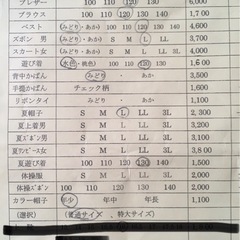 ブレザー 100 110 120 130 6,000
ブラウス 100 110 120 130 1,700
ベスト (みどり・あか) 100 110 120 130 4,600
ズボン 男 (みどり・あか) S M L LL 3,700
スカート女 (みどり・あか) S M L LL
遊び着 (水色・桃色) 100 110 120 130 1,600
背中かばん みどり・あか 3,500
手提かばん チェック柄 1,600
リボンタイ みどり・あか
夏帽子 S M L LL 3L 2,300
夏上着男 S M L LL 3L
夏ズボン男 S M L LL 3L
夏ワンピース女 S M L LL 3L
夏遊び着 100 110 120 130 1,500
体操服 S M L LL 3L 2,000
体操ズボン 100 110 120 130 2,000
カラー帽子 年少 年中 年長 1,100
(選択) (普通サイズ、特大サイズ)